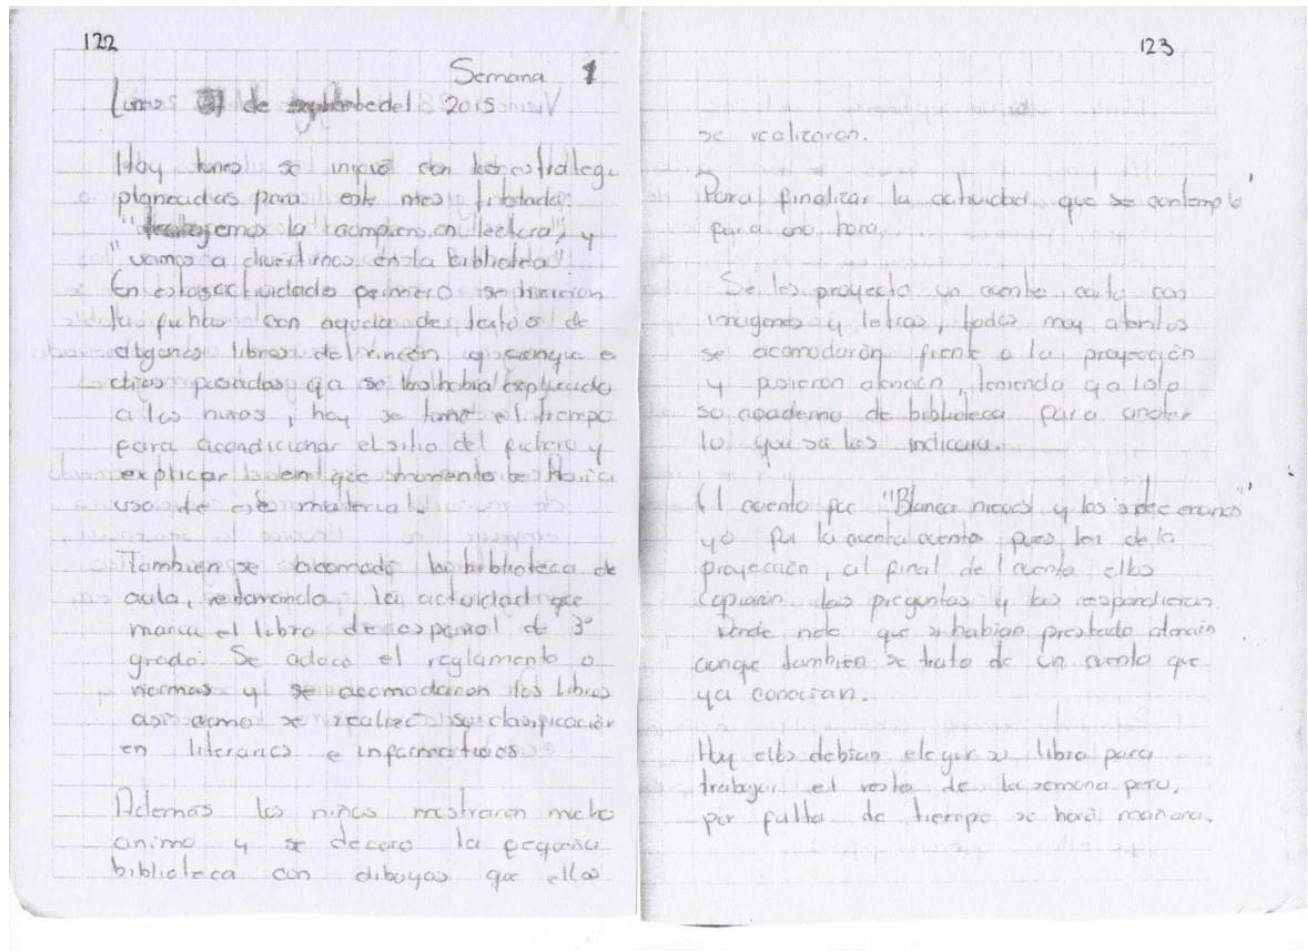 122
Semana 1
Lunes de del 2015
Hoy lunes se inició con las estrategi
planeadas para este mes titulada:
"trabajemos la compresion lectora", y
"vamos a divertirnos en la biblioteca"
En estas actividades primero se hicieron
la fichas con aquela de texto o de
algunos libros del rincón, aunque e
dias pasados ya se los habia explicado
a los niños, hoy se tomó el tiempo
para acondicionar el sitio del fichero y
explicar bien que momento se haria
uso de este material
Tambien se acomodó la biblioteca de
aula, retomando la actividad que
marca el libro de español de 3°
grado. Se colocó el reglamento o
normas y se acomodaron los libros
asi como se realizó su clasificación
en literarios e informativos.
Ademas los niños mostraron mucho
animo y se decoro la pequeña
biblioteca con dibujos que ellos
123
se realizaron.
Para finalizar la actividad que se contempló
para una hora.
Se les proyecto un cuento corto con
imagenes y letras, todos muy atentos
se acomodarón frente a la proyección
y pusieron atención, teniendo ya listo
su cuaderno de biblioteca para anotar
lo que sa les indicara.
El cuento fue "Blanca nieves y los siete enanos"
yo fui la cuenta cuento pues lei de la
proyección, al final del cuento ellos
copiarón las preguntas y las respondieron.
Donde note que si habian prestado atención
aunque tambien se trato de un cuento que
ya conocian.
Hoy ellos debian elegir su libro para
trabajar el resto de la semana pero,
por falta de tiempo se hará mañana.